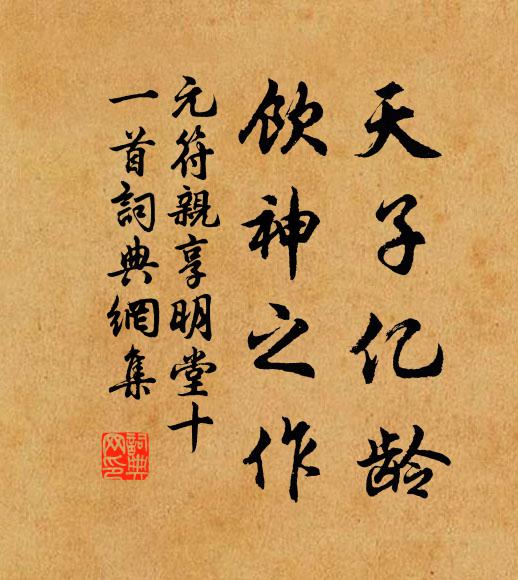 天子亿龄
饮神之作
元符親享明堂十
一首詞典網集
詞典网印